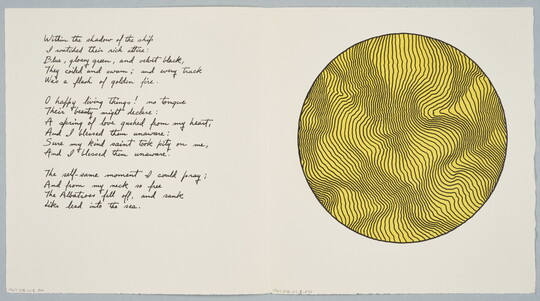 Within the shadow of the ship
I watched their rich attire:
Blue, glossy green, and velvet black,
They coiled and swam; and every track
Was a flash of golden fire.
O happy living things! no tongue
Their beauty might declare:
A spring of love gushed from my heart,
And I blessed them unaware:
Sure my kind saint took pity on me,
And I blessed them unaware.
The self-same moment I could pray;
And from my neck so free
The Albatross fell off, and sank
Like lead into the sea.